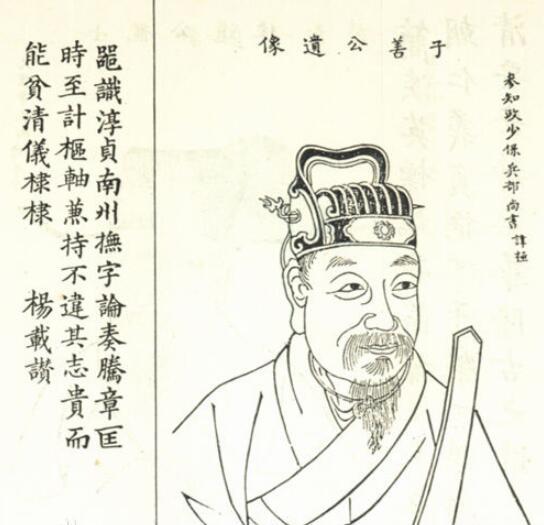 參知政少保兵部尚書 諱
子善公遺像
噐識淳貞南州撫字論奏騰章匡
時至計樞軸兼持不違其志貴而
能貧清儀棣棣 楊載讚